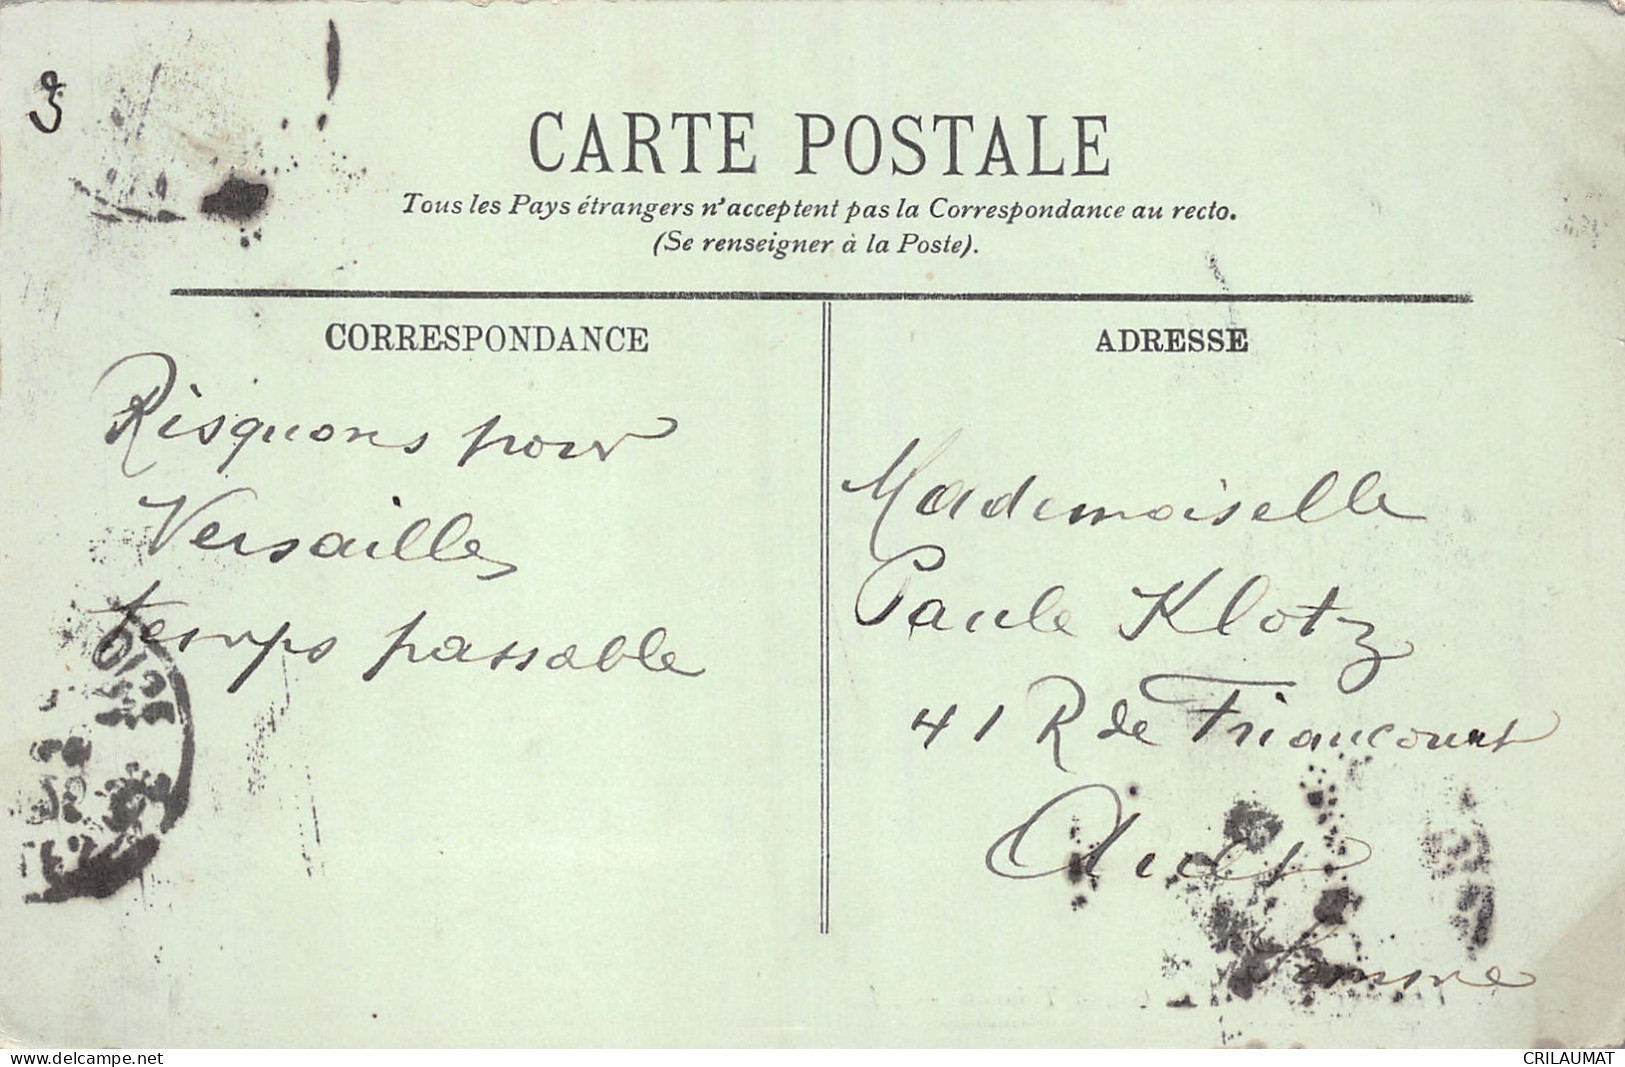 CARTE POSTALE
Tous les Pays étrangers n'acceptent pas la Correspondance au recto.
(Se renseigner à la Poste).
CORRESPONDANCE
ADRESSE
Risquons pour
Versailles
temps passable
Mademoiselle
Paule Klotz
41 R de Friaucourt
Ault
Somme
www.delcampe.net
CRILAUMAT